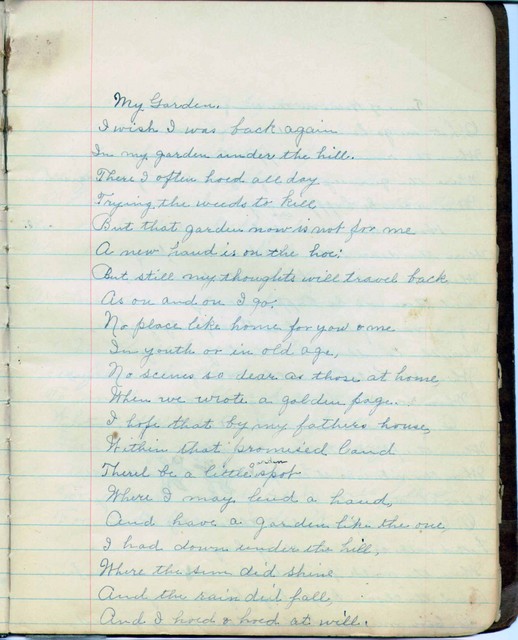 My Garden.
I wish I was back again
In my garden under the hill.
There I often hoed all day
Trying the weeds to kill
But that garden now is not for me
A new hand is on the hoe:
But still my thoughts will travel back
As on and on I go.
No place like home for you & me
In youth or in old age,
No scenes so dear as those at home,
When we wrote a golden page.
I hope that by my fathers house,
Within that promised land
Therell be a little garden spot
Where I may lend a hand,
And have a garden like the one,
I had down under the hill,
Where the sun did shine
And the rain did fall,
And I hoed & hoed at will.